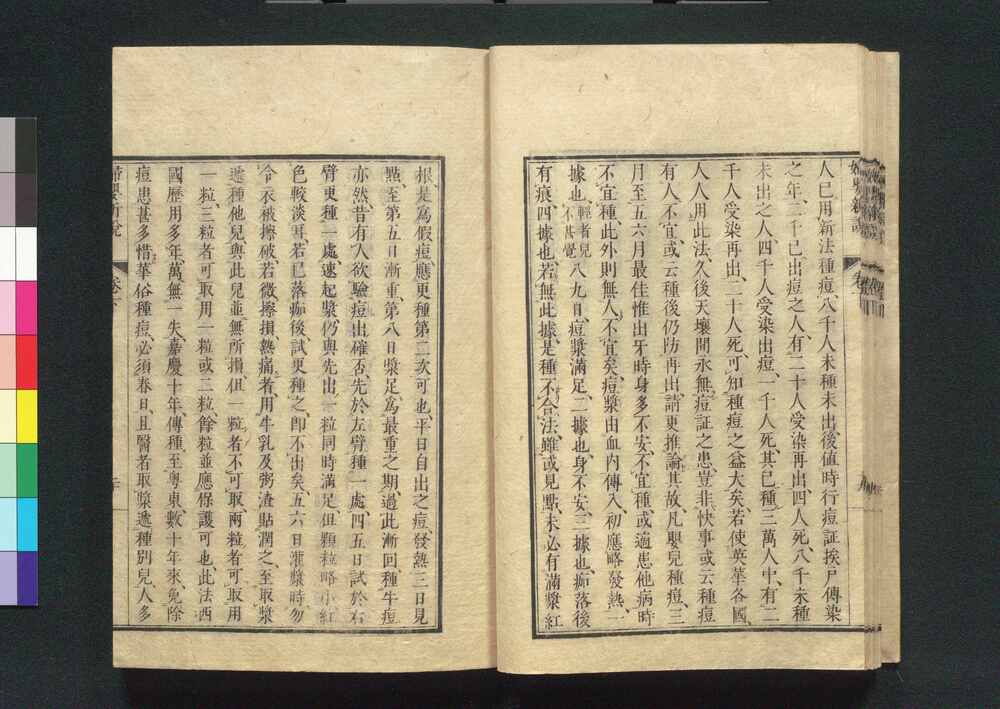 人已用新法種痘八千人未種未出後值時行痘証挨戶傳染
之年二千已出痘之人有二十人受染再出四人死八千未種
未出之人四千人受染出痘一千人死其已種二萬人中有二
千人受染再出二十人死可知種痘之益大矣若使英華各國
人人用此法久後天壤間永無痘証之患豈非快事或云種痘
有人不宜或云種後仍防再出請更推論其故凡嬰兒種痘三
月至五六月最佳惟出牙時身多不安不宜種或適患他病時
不宜種此外則無人不宜矣痘漿由血內傳入初應略發熱一
據也輕者兒不甚覺八九日痘漿滿足二據也身不安三據也痂落後
有痕四據也若無此據是種不合法雖或見點未必有滿漿紅
根是為假痘應更種第二次可也平日自出之痘發熱三日見
點至第五日漸重第八日漿足為最重之期過此漸回種牛痘
亦然昔有人欲驗痘出確否先於左臂種一處四五日試於右
臂更種一處速起漿仍與先出一粒同時滿足但顆粒略小紅
色較淡耳若已落痂後試更種之卽不出矣五六日灌漿時勿
令衣被擦破若微擦損熱痛者用牛乳及粥渣貼潤之至取漿
遞種他兒與此兒並無所損但一粒者不可取兩粒者可取用
一粒三粒者可取用一粒或二粒餘粒並應保護可也此法西
國歷用多年萬無一失嘉慶十年傳種至粵東數十年來免除
痘患甚多惜華俗種痘必須春日且醫者取漿遞種別兒人多